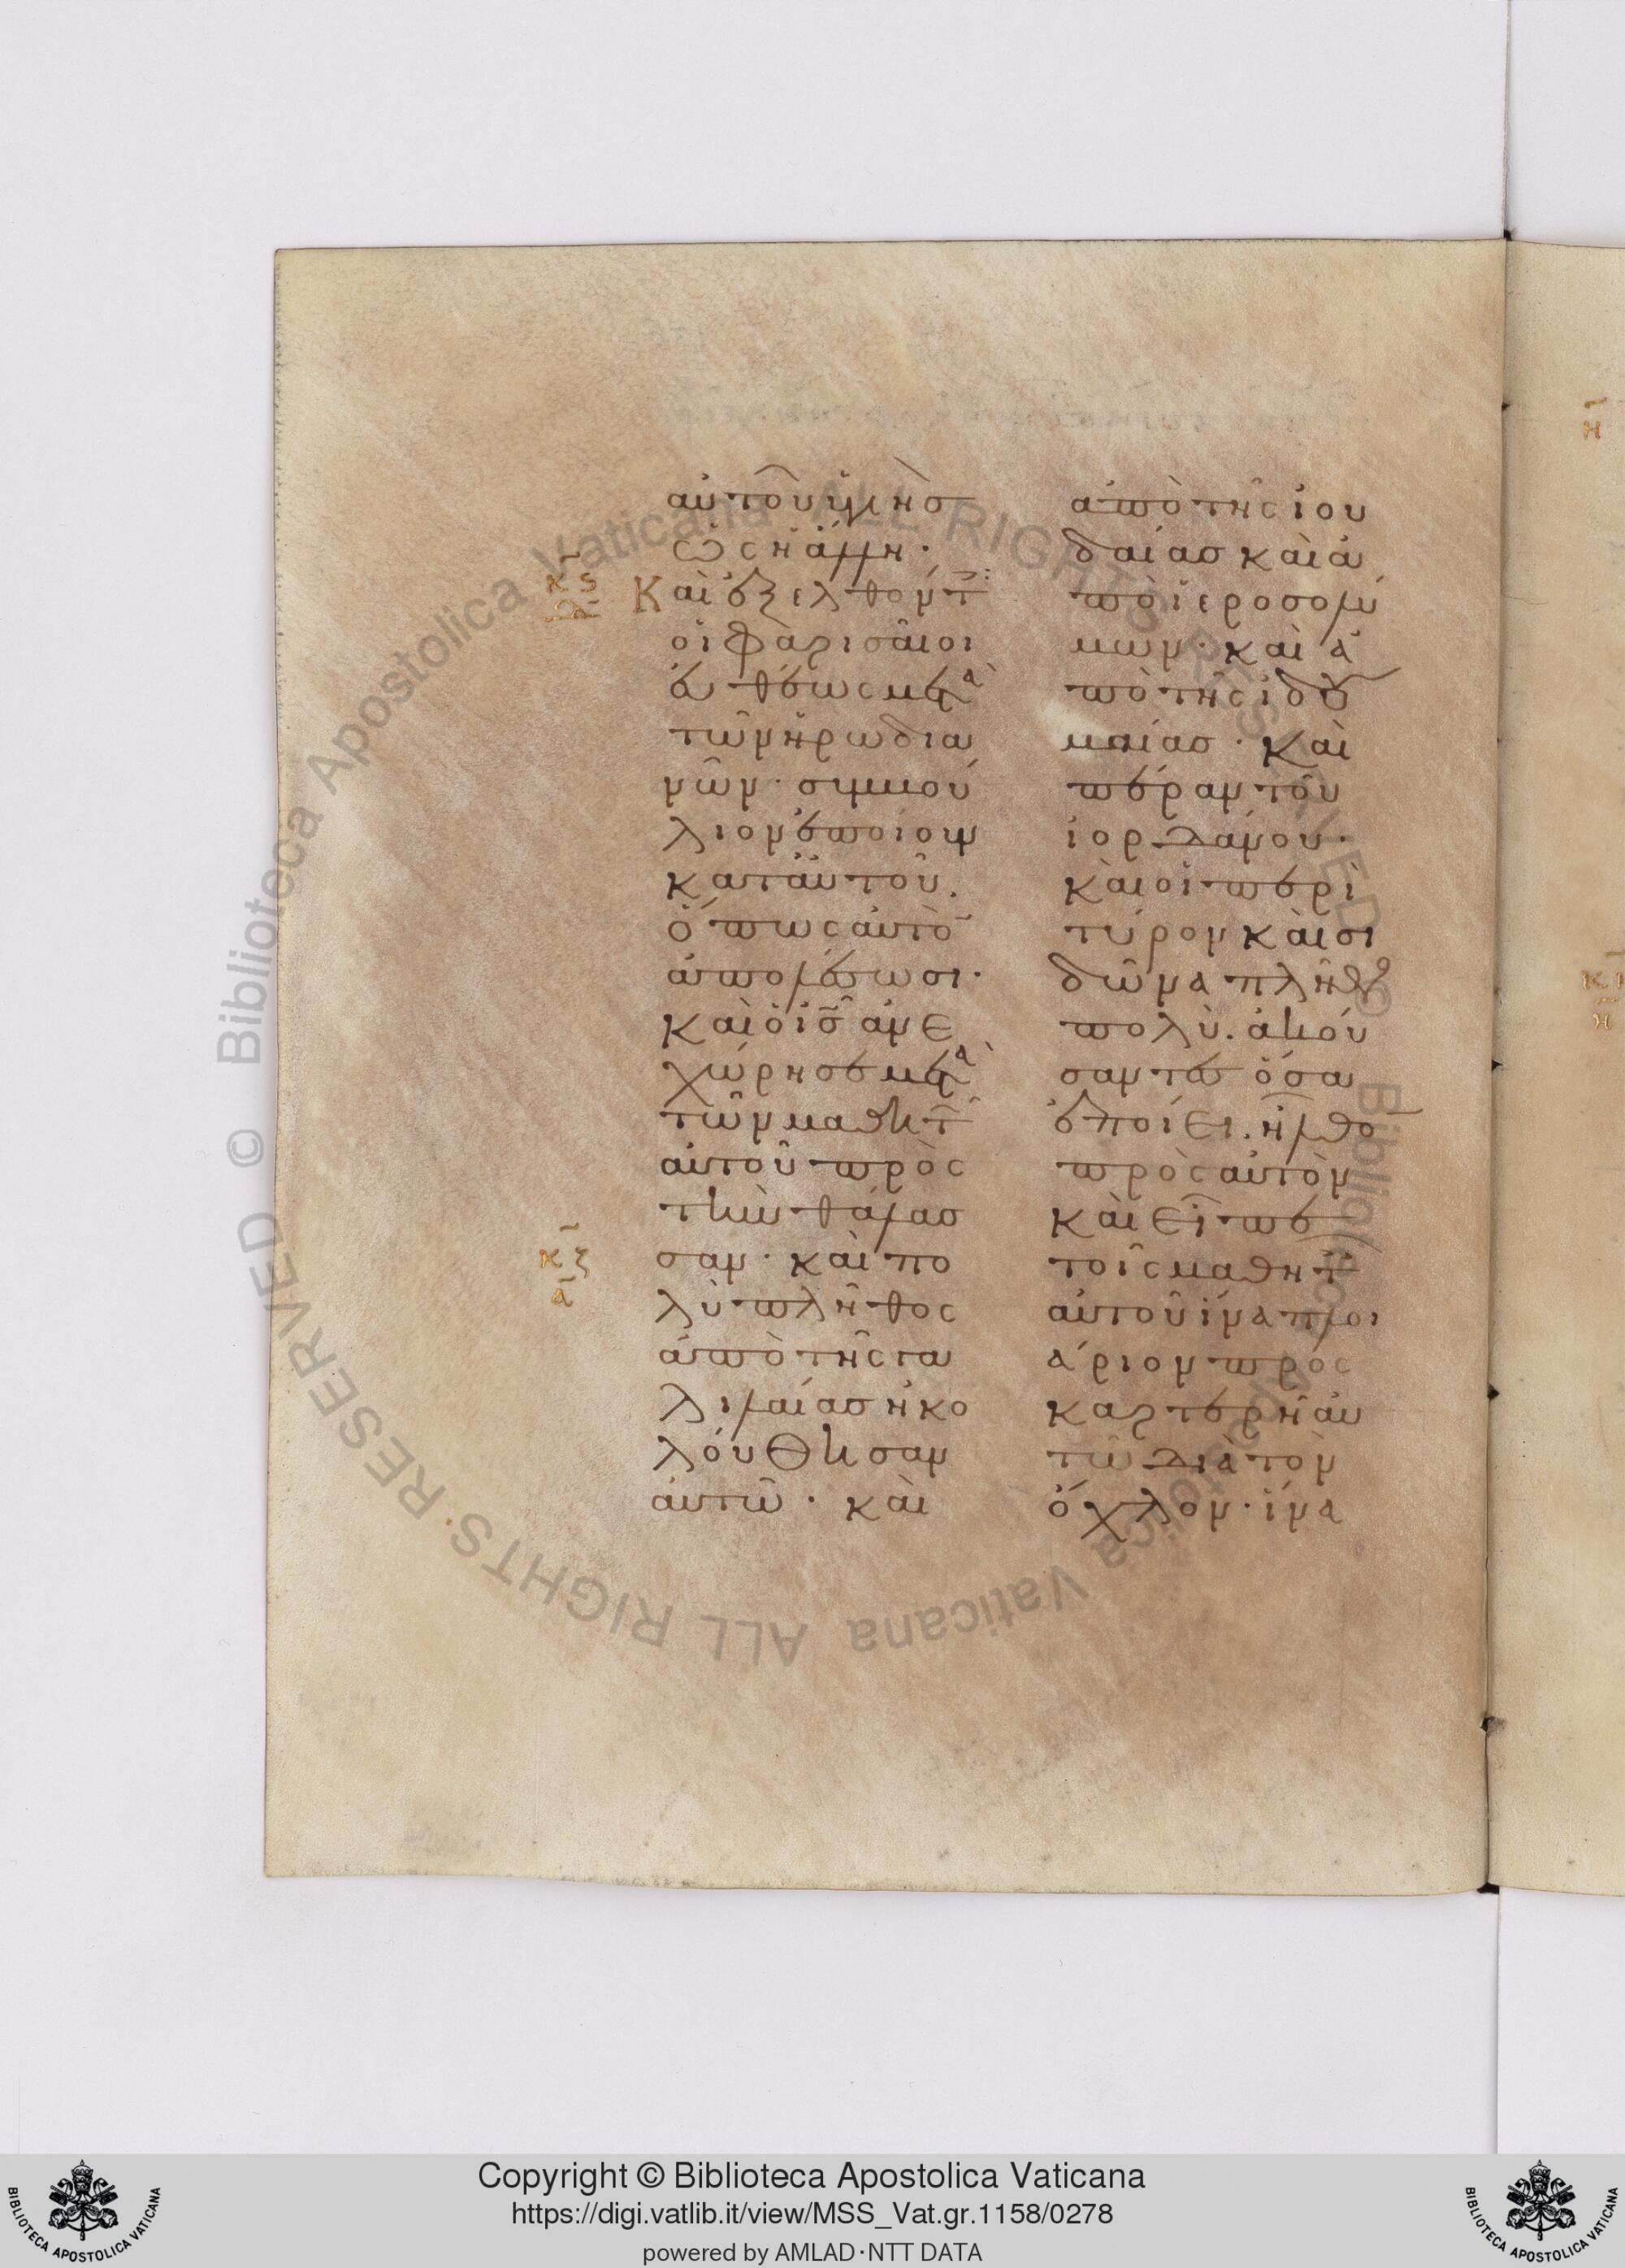 αὐτοῦ ὑγιὴσ
ὡς ἡ ἄλλη·
κϛ
Καὶ ἐξελθόντ
οἱ φαρισαῖοι
εὐθέως μετὰ
τῶν ἡρωδια
νῶν· συμβού
λιον ἐποίουν
κατ αὐτοῦ.
ὅπως αὐτὸ
ἀπολέσωσι·
καὶ ὁ ισ ἀνε
χώρησε μετὰ
τῶν μαθητ
αὐτοῦ πρὸς
τὴν θάλασ
κζ
α
σαν· καὶ πο
λὺ πλῆθος
ἀπὸ τῆς γα
λιλαίασ ἠκο
λούθησαν
αὐτῶ· καὶ
ἀπὸ τῆς ἰου
δαίασ καὶ ἀ
πὸ ἱεροσολύ
μων· καὶ ἀ
πὸ τῆς ἰδου
μαίασ· Καὶ
πέραν τοῦ
ἰορδάνου·
καὶ οἱ περὶ
τύρον καὶ σι
δῶνα πλῆθο
πολὺ. ἀκού
σαντεσ ὅσα
ἐποίει. ἦλθο
πρὸς αὐτὸν
καὶ εἶπε
τοῖς μαθητ
αὐτοῦ ἵνα πλοι
άριον προς
καρτερῆ αὐ
τῶ διὰ τὸν
ὄχλον· ἵνα
© Biblioteca Apostolica Vaticana ALL RIGHTS RESERVED © Biblioteca Apostolica Vaticana ALL RIGHTS RESERVED
Copyright © Biblioteca Apostolica Vaticana
https://digi.vatlib.it/view/MSS_Vat.gr.1158/0278
powered by AMLAD·NTT DATA
BIBLIOTECA APOSTOLICA VATICANA
BIBLIOTECA APOSTOLICA VATICANA